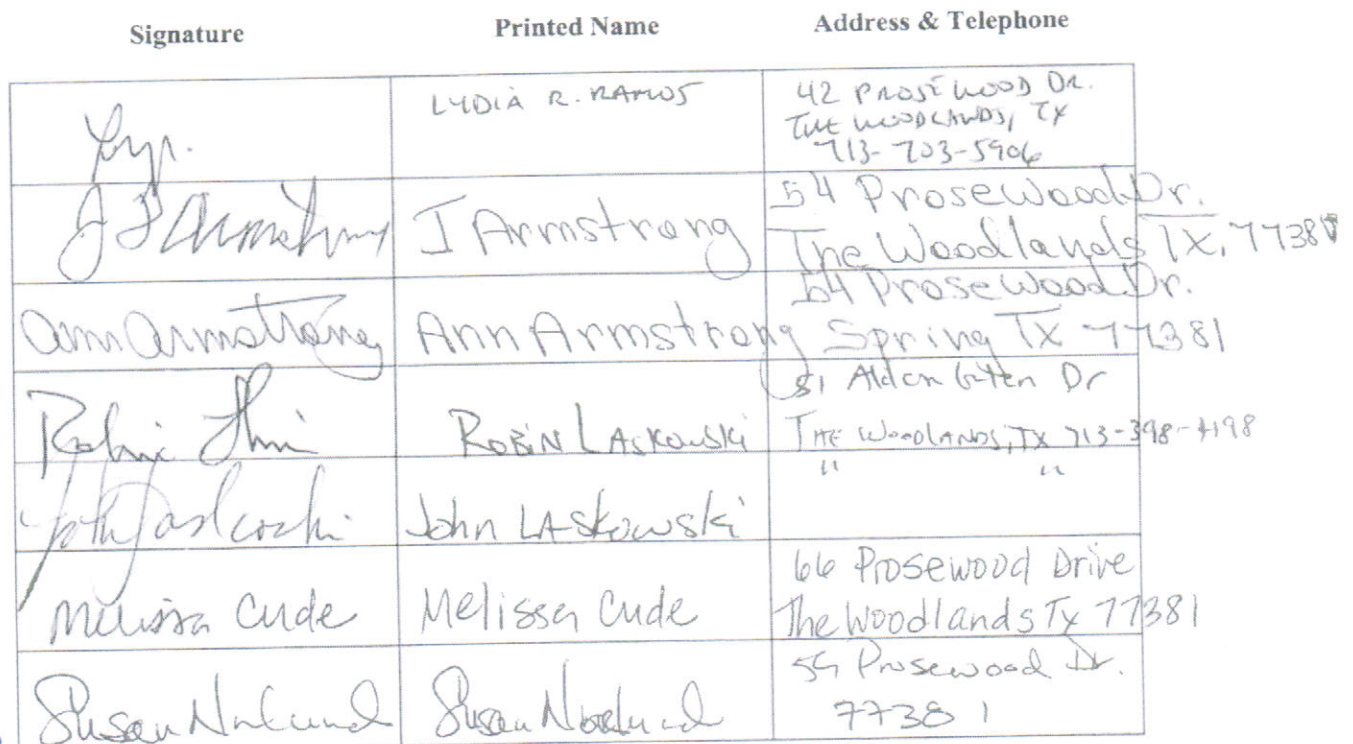 Signature Printed Name Address & Telephone
LYDIA R. RAMOS
42 PROSEWOOD DR.
THE WOODLANDS, TX
713-703-5906
J Armstrong
J Armstrong
54 Prosewood Dr.
The Woodlands TX, 77381
Ann Armstrong
Ann Armstrong
54 Prosewood Dr.
Spring TX 77381
Robin
ROBIN LASKOWSKI
51 Alden Glen Dr
THE WOODLANDS, TX 713-398-4198
John Laskowski
John LASKOWSKI
" "
Melissa Cude
Melissa Cude
66 Prosewood Drive
The Woodlands Tx 77381
Susan
Susan
59 Prosewood Dr.
77381